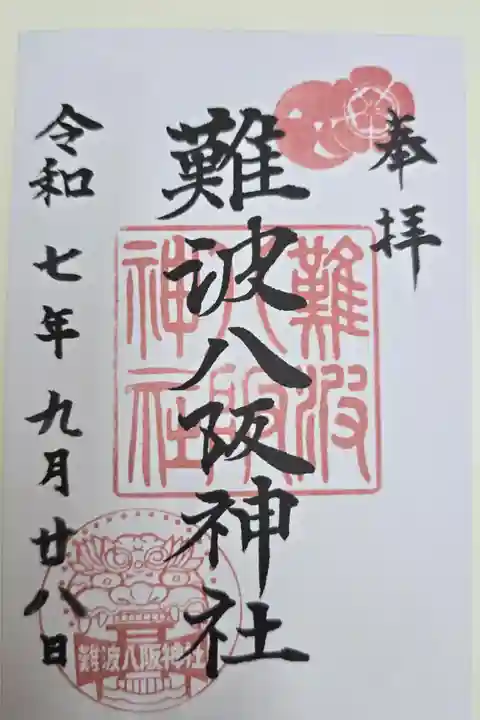 奉拝
難波八阪神社
難波
八阪
神社
令和七年九月廿八日
難波八阪神社